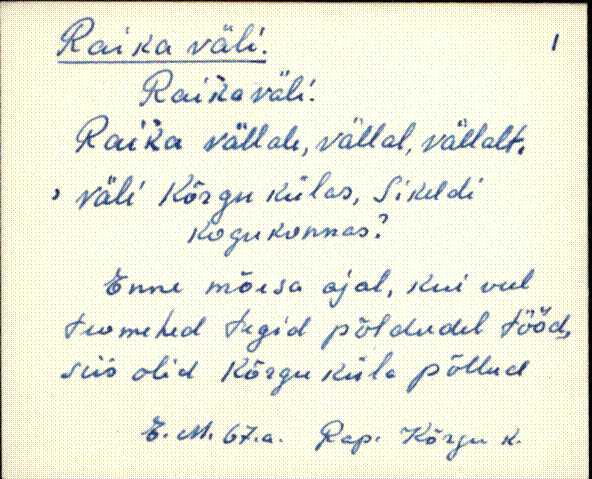 Raika väli. 1
Raika väli.
Raika vällale, vällal, vällalt.
, väli Kõrgu külas, Sikeldi
kogukonnas?
Enne mõisa ajal, kui veel
teomehed tegid põldudel tööd,
siis olid Kõrgu küla põllud
E. M. 67. a. Rap. Kõrgu k.